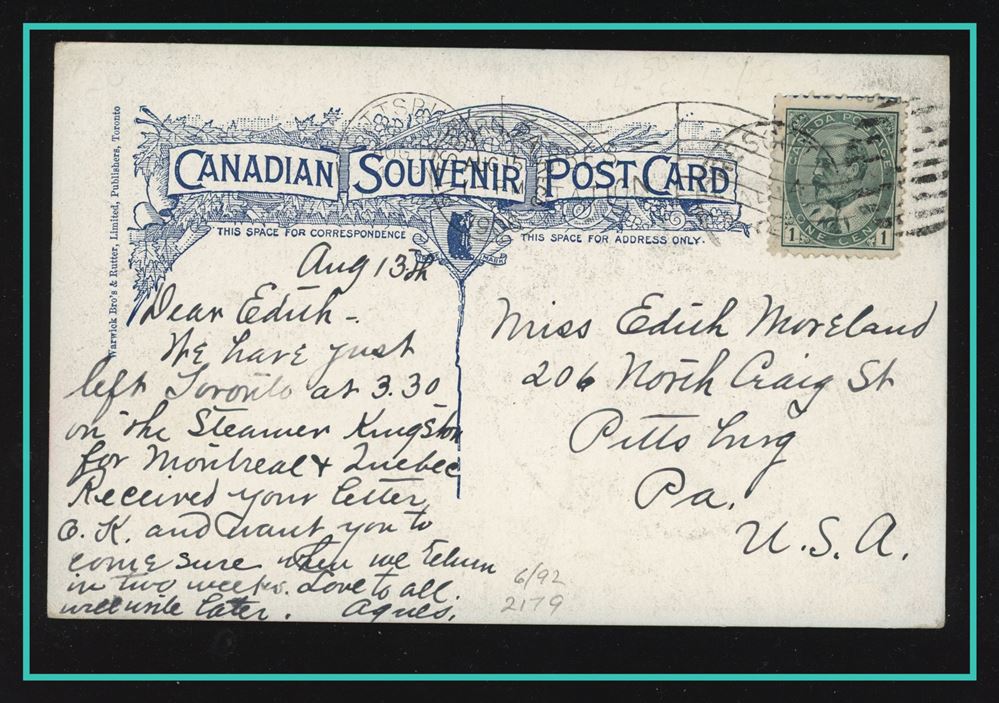 CANADIAN SOUVENIR POST CARD
THIS SPACE FOR CORRESPONDENCE
THIS SPACE FOR ADDRESS ONLY.
Warwick Bro's & Rutter, Limited, Publishers, Toronto
AUG 15
CANADA POSTAGE
1 ONE CENT 1
Aug 13th
Dear Edith -
We have just
left Toronto at 3.30
on the Steamer Kingston
for Montreal & Quebec
Received your letter
O.K. and want you to
come sure when we return
in two weeks. Love to all.
will write later. Agnes.
Miss Edith Moreland
206 North Craig St
Pittsburg
Pa.
U.S.A.
6/92
2179